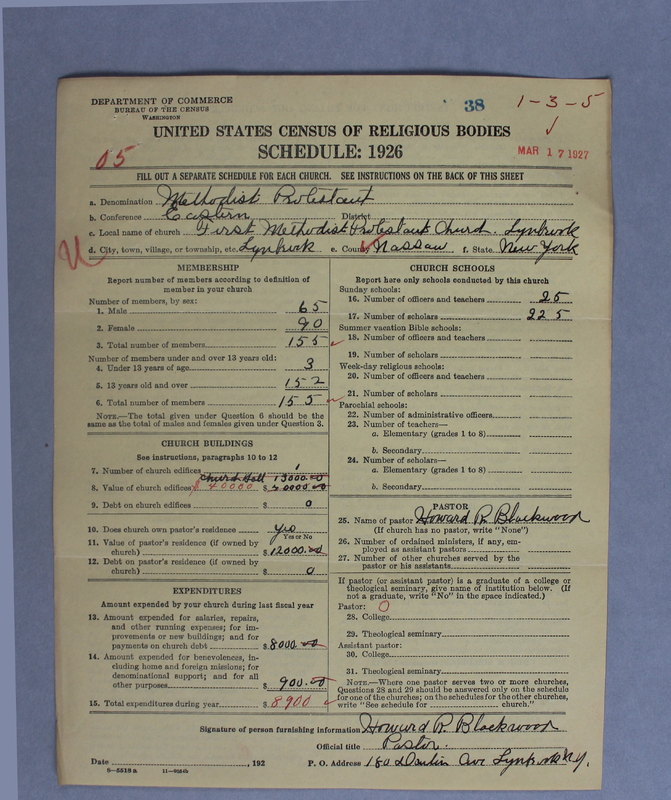 DEPARTMENT OF COMMERCE
BUREAU OF THE CENSUS
WASHINGTON
38
1-3-5
UNITED STATES CENSUS OF RELIGIOUS BODIES
05
SCHEDULE: 1926
MAR 17 1927
FILL OUT A SEPARATE SCHEDULE FOR EACH CHURCH. SEE INSTRUCTIONS ON THE BACK OF THIS SHEET
a. Denomination Methodist Protestant
b. Conference Eastern District
c. Local name of church First Methodist Protestant Church. Lynbrook
U
d. City, town, village, or township, etc. Lynbrook e. County Nassau f. State New York
MEMBERSHIP
Report number of members according to definition of
member in your church
Number of members, by sex:
1. Male 65
2. Female 90
3. Total number of members 155
Number of members under and over 13 years old:
4. Under 13 years of age 3
5. 13 years old and over 152
6. Total number of members 155
NOTE.—The total given under Question 6 should be the
same as the total of males and females given under Question 3.
CHURCH BUILDINGS
See instructions, paragraphs 10 to 12
7. Number of church edifices 1
Church Hall 13000.00
8. Value of church edifices $ 40000 $
9. Debt on church edifices $ 0
10. Does church own pastor's residence yes
Yes or No
11. Value of pastor's residence (if owned by
church) $ 12000.00
12. Debt on pastor's residence (if owned by
church) $ 0
EXPENDITURES
Amount expended by your church during last fiscal year
13. Amount expended for salaries, repairs,
and other running expenses; for im-
provements or new buildings; and for
payments on church debt $ 8000.00
14. Amount expended for benevolences, in-
cluding home and foreign missions; for
denominational support; and for all
other purposes $ 900.00
15. Total expenditures during year $ 8900
CHURCH SCHOOLS
Report here only schools conducted by this church
Sunday schools:
16. Number of officers and teachers 25
17. Number of scholars 225
Summer vacation Bible schools:
18. Number of officers and teachers
19. Number of scholars
Week-day religious schools:
20. Number of officers and teachers
21. Number of scholars
Parochial schools:
22. Number of administrative officers
23. Number of teachers—
a. Elementary (grades 1 to 8)
b. Secondary
24. Number of scholars—
a. Elementary (grades 1 to 8)
b. Secondary
PASTOR
25. Name of pastor Howard R. Blackwood
(If church has no pastor, write "None")
26. Number of ordained ministers, if any, em-
ployed as assistant pastors
27. Number of other churches served by the
pastor or his assistants
If pastor (or assistant pastor) is a graduate of a college or
theological seminary, give name of institution below. (If
not a graduate, write "No" in the space indicated.)
Pastor: 0
28. College
29. Theological seminary
Assistant pastor:
30. College
31. Theological seminary
NOTE.—Where one pastor serves two or more churches,
Questions 28 and 29 should be answered only on the schedule
for one of the churches; on the schedules for the other churches,
write "See schedule for church."
Signature of person furnishing information Howard R. Blackwood
Official title Pastor.
Date , 192 P. O. Address 180 Ave Lynbrook N.Y.
8-5518a 11-9504b